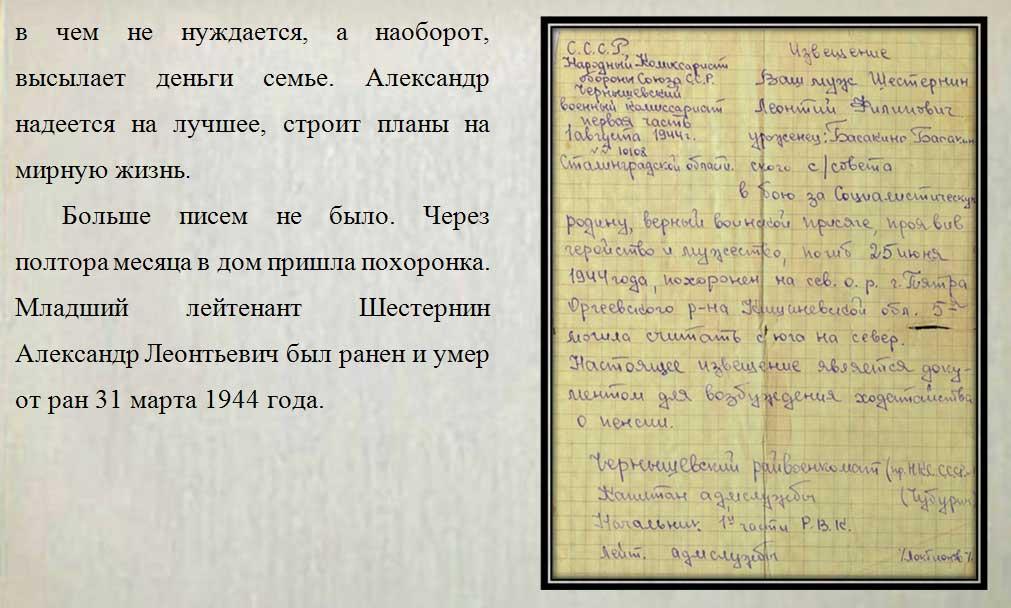 в чем не нуждается, а наоборот,
высылает деньги семье. Александр
надеется на лучшее, строит планы на
мирную жизнь.
Больше писем не было. Через
полтора месяца в дом пришла похоронка.
Младший лейтенант Шестернин
Александр Леонтьевич был ранен и умер
от ран 31 марта 1944 года.
С.С.С.Р.
Народный Комиссариат
обороны Союза С.С.Р.
Чернышевский
военный комиссариат
первая часть
1 августа 1944 г.
№ 10108
Сталинградской области.
Извещение
Ваш муж Шестернин
Леонтий Филипович
уроженец: Басакино Басакин
ского с/совета
в бою за Социалистическую
родину, верный воинской присяге, проявив
геройство и мужество, погиб 25 июня
1944 года, похоронен на сев. о. р. г. Пятра
Оргеевского р-на Кишиневской обл. 5-я
могила считать с юга на север.
Настоящее извещение является доку-
ментом для возбуждения ходатайства
о пенсии.
Чернышевский райвоенкомат (пр. НКС СССР-
Капитан адмслужбы (Чубурин
Начальник 1й части Р.В.К.
Лейт. адмслужбы /Локтионов/.